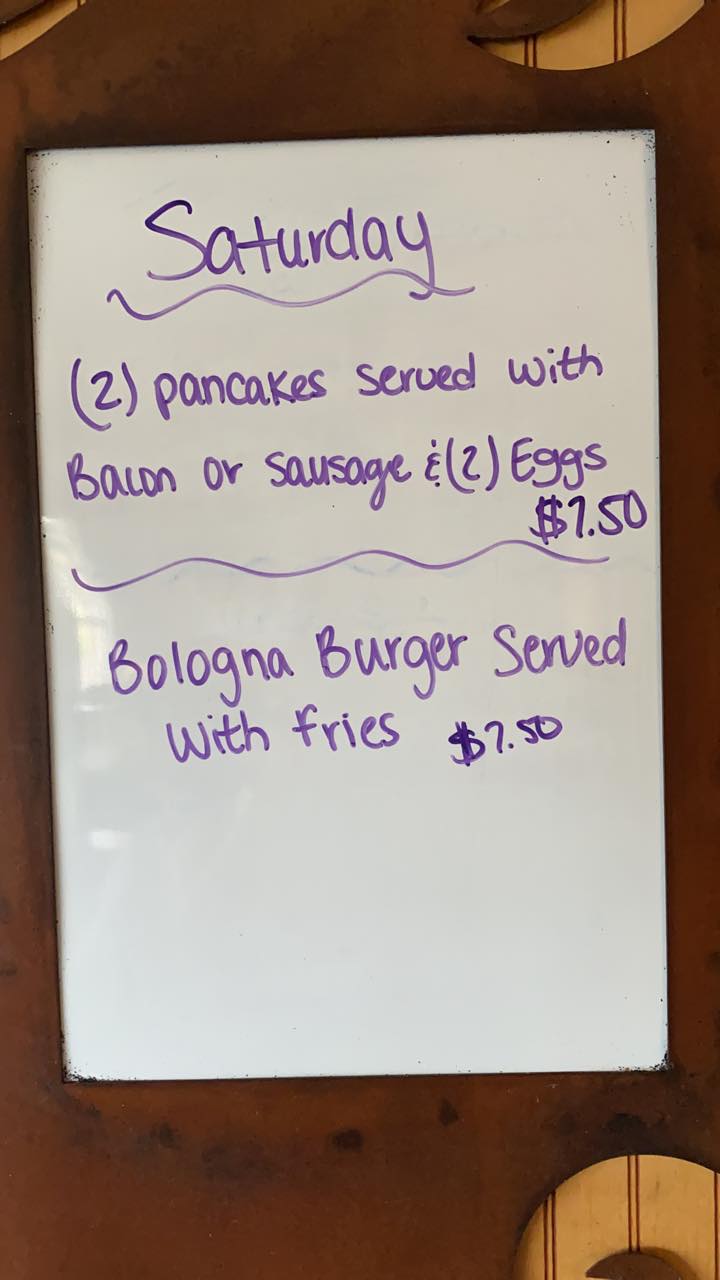 Saturday
(2) pancakes served with
Bacon or sausage & (2) Eggs
$7.50
Bologna Burger Served
With fries $7.50